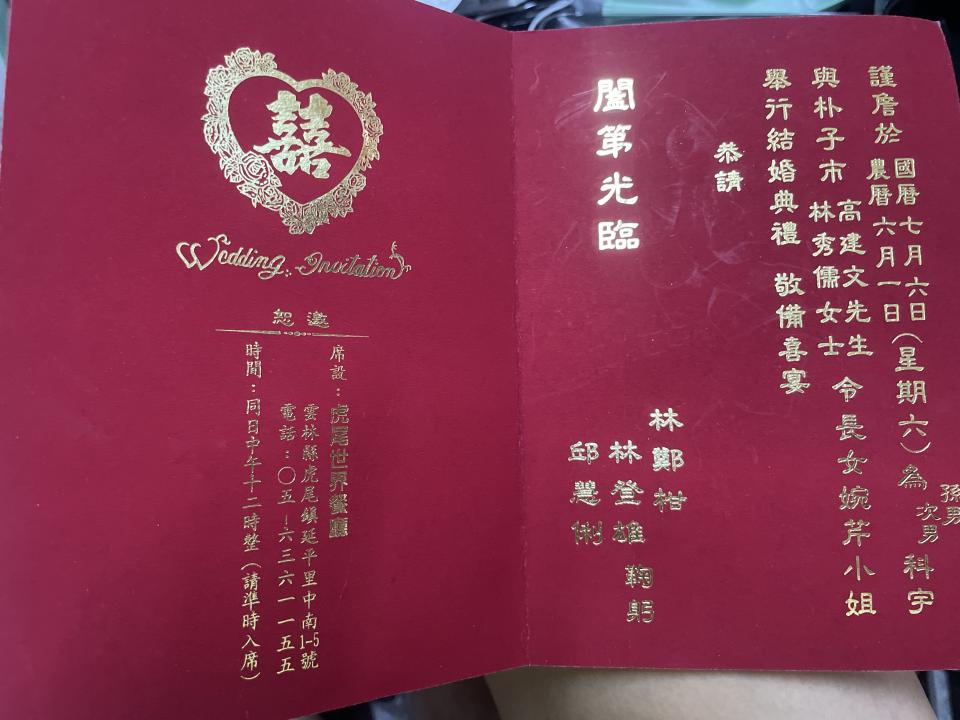 謹詹於國曆七月六日農曆六月一日(星期六)為孫男次男科宇
與朴子市高建文先生林秀儒女士令長女婉芹小姐
舉行結婚典禮 敬備喜宴
恭請
闔第光臨
林鄭柑
林登雄
邱慧俐
鞠躬
囍
Wedding Invitation
恕邀
席設:虎尾世界餐廳
雲林縣虎尾鎮延平里中南1-5號
電話:〇五-六三六一一五五
時間:同日中午十二時整(請準時入席)